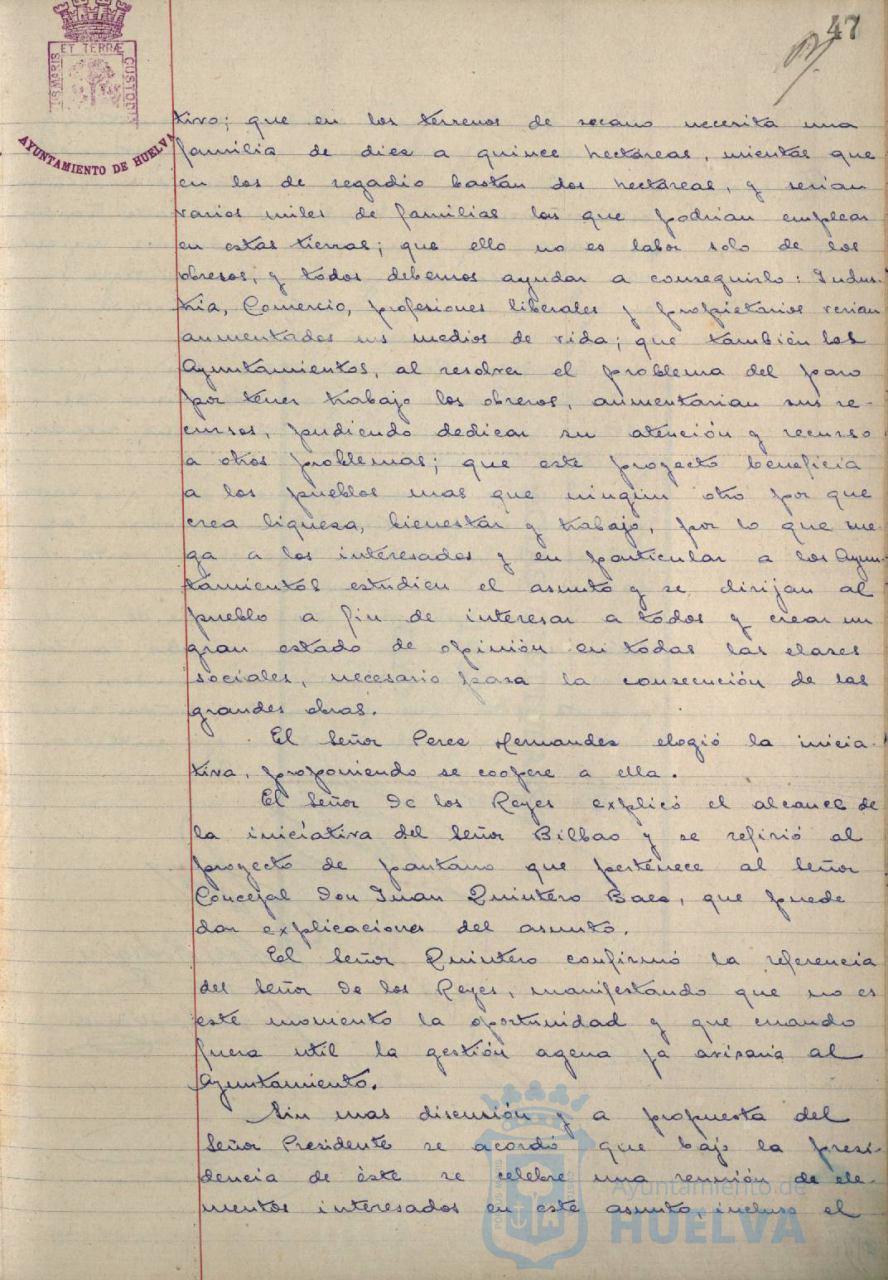 47
ET TERRÆ
CUSTODIA
AYUNTAMIENTO DE HUELVA
tivo; que en los terrenos de secano necesita una
familia de diez a quince hectáreas, mientas que
en los de regadio bastan dos hectáreas, y serian
varios miles de familias las que podrian emplear
en estas tierras; que ello no es labor solo de los
obreros, y todos debemos ayudar a conseguirlo: Indus-
tria, Comercio, profesiones liberales y propietarios verian
aumentados sus medios de vida; que también los
Ayuntamientos, al resolver el problema del paro
por tener trabajo los obreros, aumentarian sus re-
cursos, pudiendo dedicar su atención y recurso
a otros problemas; que este proyecto beneficia
a los pueblos mas que ningún otro por que
crea riqueza, bienestar y trabajo, por lo que rue-
ga a los interesados y en particular a los Ayun-
tamientos estudien el asunto y se dirijan al
pueblo a fin de interesar a todos y crear un
gran estado de opinión en todas las clases
sociales, necesario para la consecución de las
grandes obras.
El Señor Perez Hernandez elogió la inicia-
tiva, proponiendo se coopere a ella.
El Señor De los Reyes explicó el alcance de
la iniciativa del Señor Bilbao y se refirió al
proyecto de pantano que pertenece al Señor
Concejal Don Juan Quintero Baez, que puede
dar explicaciones del asunto.
El Señor Quintero confirmó la referencia
del Señor De los Reyes, manifestando que no es
este momento la oportunidad y que cuando
fuera util la gestión agena ya avisaria al
Ayuntamiento.
Sin mas discusión y a propuesta del
Señor Presidente se acordó que bajo la presi-
dencia de éste se celebre una reunión de ele-
mentos interesados en este asunto, incluso el
Ayuntamiento de
HUELVA